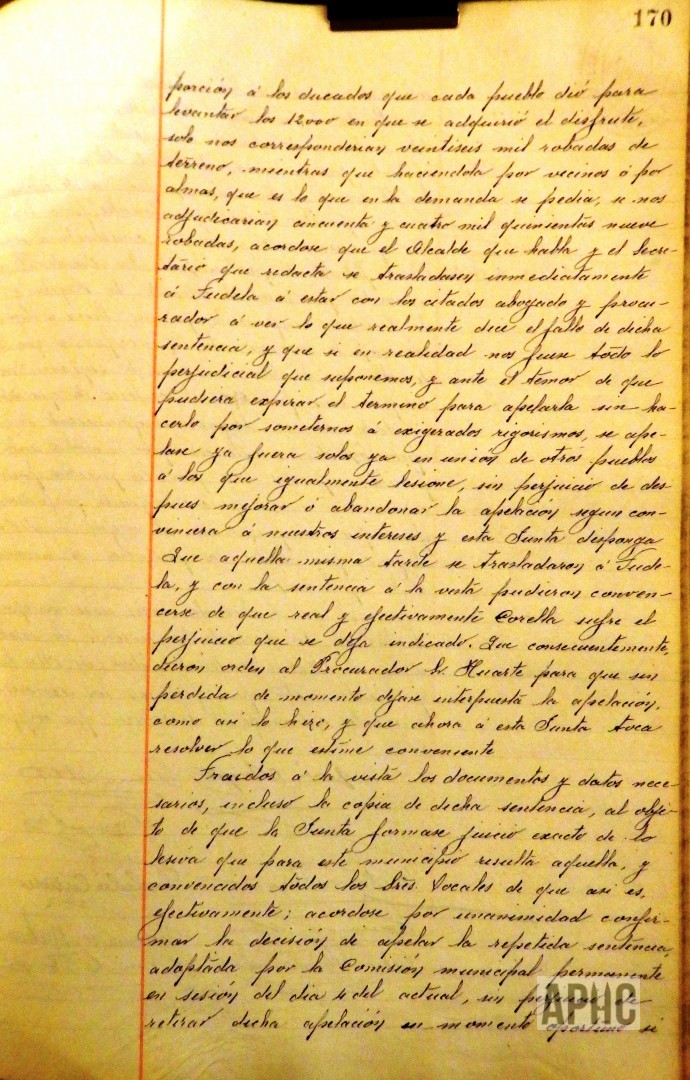 170
porción á los ducados que cada pueblo dió para
levantar los 12,000 en que se adquirió el disfrute,
solo nos corresponderian veintiseis mil robadas de
terreno, mientras que haciendola por vecinos ó por
almas, que es lo que en la demanda se pedia, se nos
adjudicarian cincuenta y cuatro mil quinientas nueve
robadas, acordose que el Alcalde que habla y el Secre-
tario que redacta se trasladasen inmediatamente
á Tudela á estar con los citados abogado y procu-
rador á ver lo que realmente dice el fallo de dicha
sentencia, y que si en realidad nos fuese todo lo
perjudicial que suponemos, y ante el temor de que
pudiera expirar el termino para apelarla sin ha-
cerlo por someternos á exigerados rigorismos, se ape-
lase ya fuera solos ya en union de otros pueblos
á los que igualmente lesione, sin perjuicio de des-
pues mejorar ó abandonar la apelación segun con-
viniera á nuestros intereses y esta Junta disponga
Que aquella misma tarde se trasladaron á Tude-
la, y con la sentencia á la vista pudieron conven-
cerse de que real y efectivamente Corella sufre el
perjuicio que se deja indicado. Que consecuentemente,
dieron orden al Procurador Sr. Huarte para que sin
perdida de momento dejase interpuesta la apelación,
como asi lo hizo, y que ahora á esta Junta toca
resolver lo que estime conveniente
Traidos á la vista los documentos y datos nece-
sarios, incluso la copia de dicha sentencia, al obje-
to de que la Junta formase juicio exacto de lo
lesiva que para este municipio resulta aquella, y
convencidos todos los Sres. Vocales de que asi es,
efectivamente; acordose por unanimidad confir-
mar la decisión de apelar la repetida sentencia,
adoptada por la Comisión municipal permanente
en sesión del dia 4 del actual, sin perjuicio de
retirar dicha apelación en momento oportuno si
APHC